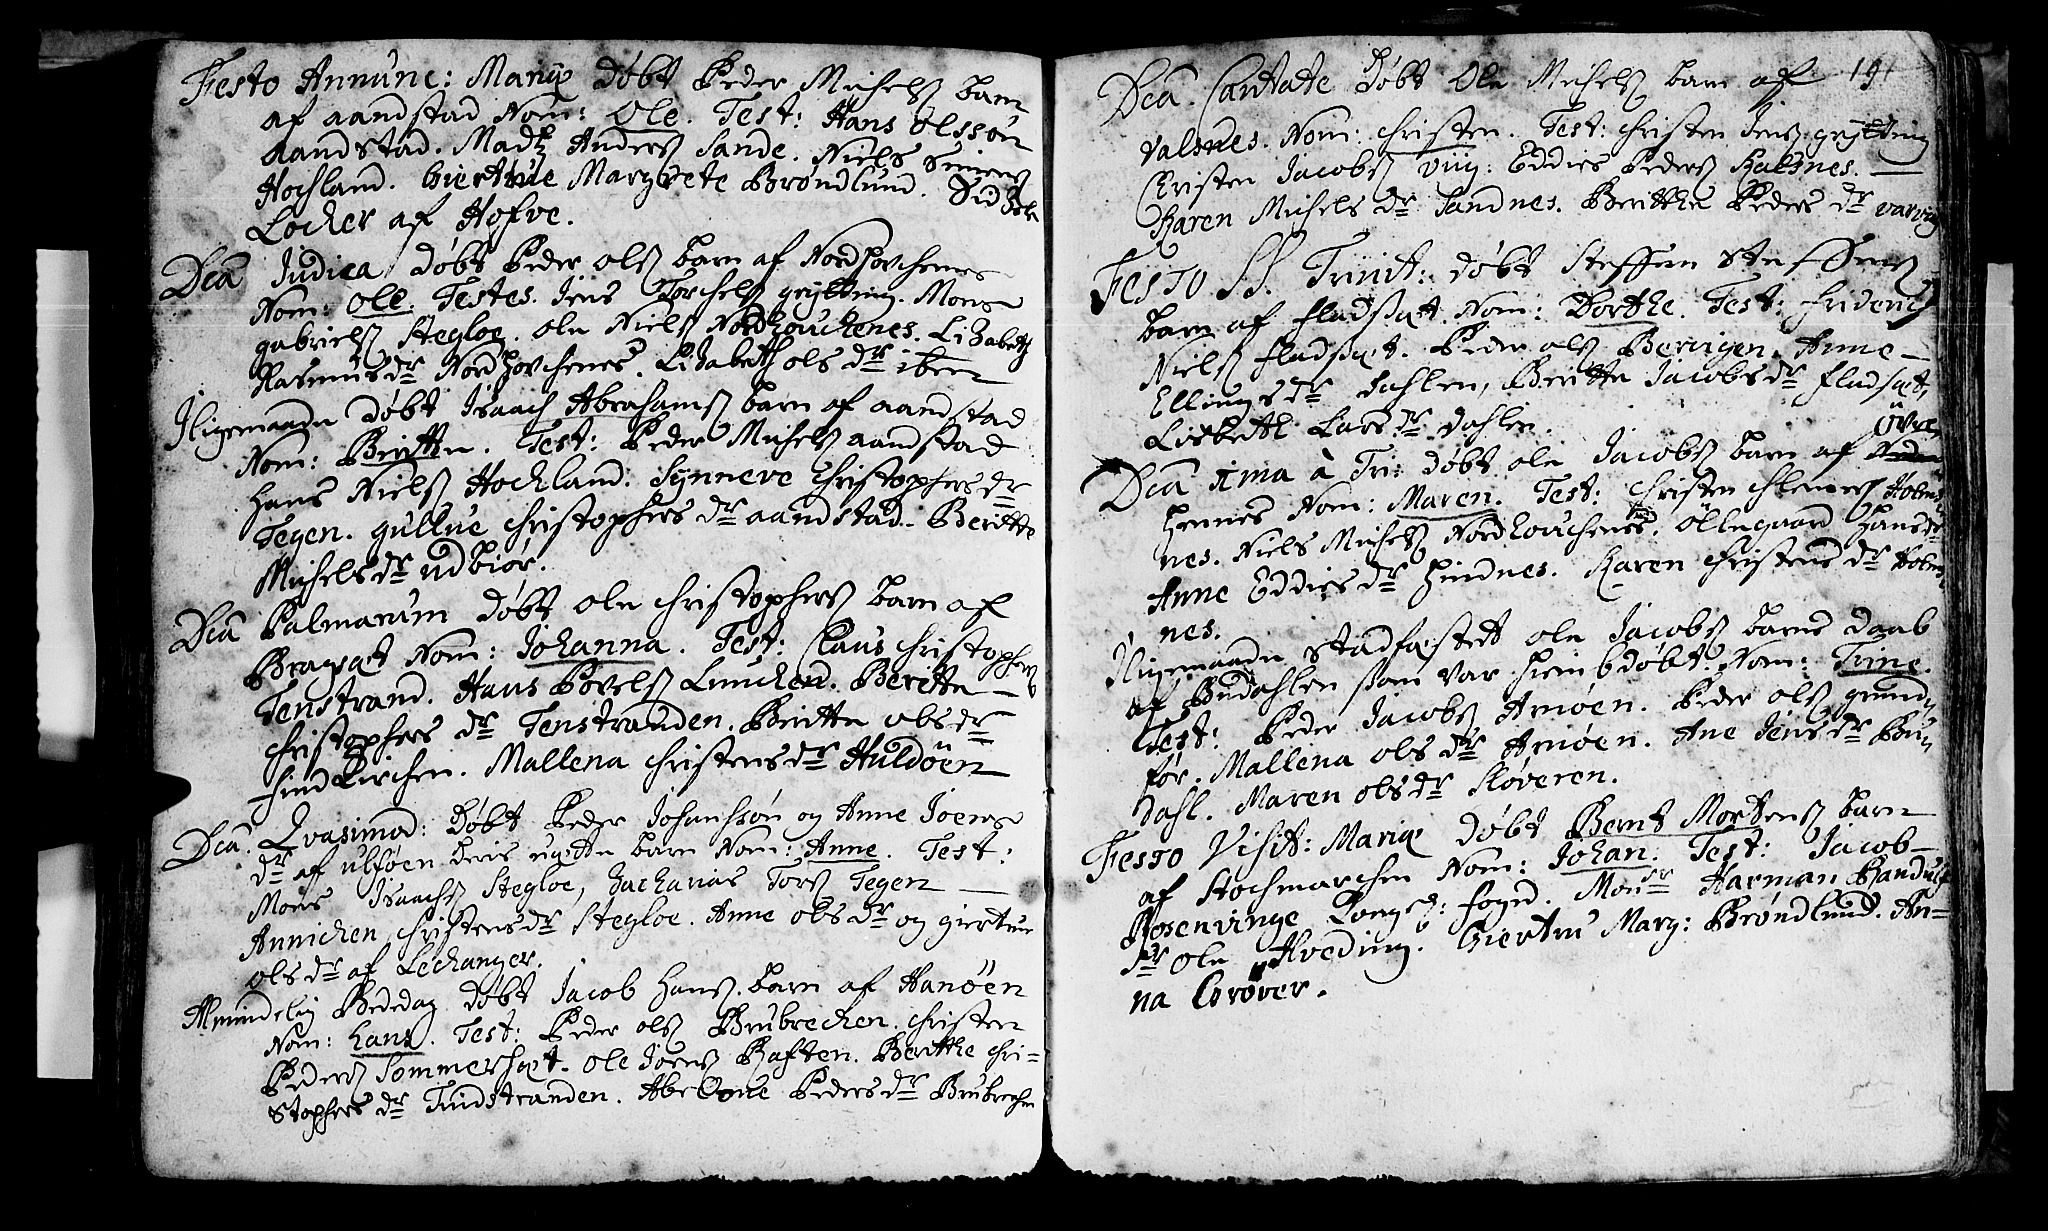 Festo Annunc: Mariæ Døbt Peder Michelß barn
af aandstad Nom: Ole. Test: Hans Olssøn
aandstad. Madß Anderß Sande. Niels Simenß
Hochland. Giertrue Margrete Brøndlund. Sidzele
Locher af Hofve.
Dca Judica døbt Peder olß barn af Nordhovchenes
Nom: Ole. Testes. Jens Torchelß grytting. Mons
gabrielß Stegloe. ole Nielß Nordhouchenes. Lizabeth
Rasmus dr Nordhovchenes. Lizabeth ols dr ibm
Iligemaade døbt Isaach Abrahamß barn af aandstad
Nom: Beritte. Test: Peder Michelß aandstad
Hans Nielß Hochland. Synneve Christophers dr
Tegen. gullue Christophers dr aandstad. Beritte
Michels dr udbiør.
Dca Palmarum døbt ole Christopherß barn af
Bragsæt Nom: Johanna. Test: Claus Christopherß
Tenstrand. Hans Povelß Lunchen. Beritte
Christophers dr Tenstranden. Beritte ols dr
Hind Kirchen. Mallena Christens dr Huldöen
Dca. Qvasimod: Døbt Peder Johanssøn og Anne Joens
dr af ulføen deris uægte barn Nom: Anne. Test:
Mons Isaachß Stegloe, Zacharias Torß Tegen
Annichen Christens dr Stegloe. Anne ols dr og giertrue
ols dr af Lechanger.
Almindelig Bededag døbt Jacob Hanß. barn af Hanöen
Nom: Hans. Test: Peder olß Brubrechen. Christen
Pederß Sommersæt. Ole Joenß Haften. Beritthe Chri-
stophers dr Tindstranden. Abelone Peders dr Brubrechen
191
Dca. Cantate Døbt Ole Michelß barn af
Valsnes. Nom: Christen. Test: Christen Jenß grytting
Christen Jacobß Vug: Eddies Pederß Halsnes.
Karen Michels dr Sandnes. Beritthe Peders dr varvig
Festo SS. Trinit: døbt Steffen Steffens
barn af Fladsæt. Nom: Dorthe. Test: Fridrich
Nielß Fladsæt. Peder olß Bervigen. Anne
Ellings dr Dahlen, Beritte Jacobs dr Fladsæt,
Lisbeth Lars dr Dahlen.
Dca 1ma à Tri: døbt ole Jacobß barn af
övre
Hennes Nom: Maren. Test: Christen Clemenß Holm
nes. Niels Michelß Nordhouchenes. Öllegaard Hans dr
Anne Eddies dr Hindnes. Karen Christens dr Holm
nes.
Iligemaade stadfæstedt ole Jacobß barns Daab
af Budahlen som var hiemb døbt. Nom: Trine.
Test: Peder Jacobß Arnöen. Peder olß grund
før. Mallena ols dr Arnöen. Ane Jens dr Bu
dahl. Maren ols dr Skøveren.
Festo Visit: Mariæ døbt Bernt Mortenß barn
af Stochmarchen Nom: Johan. Test: Jacob
Rosenvinge Konge: fogd. Monsr Harman Randulf
Sr ole Hveding. Giertru Marg: Brøndlund. An-
na Corøver.